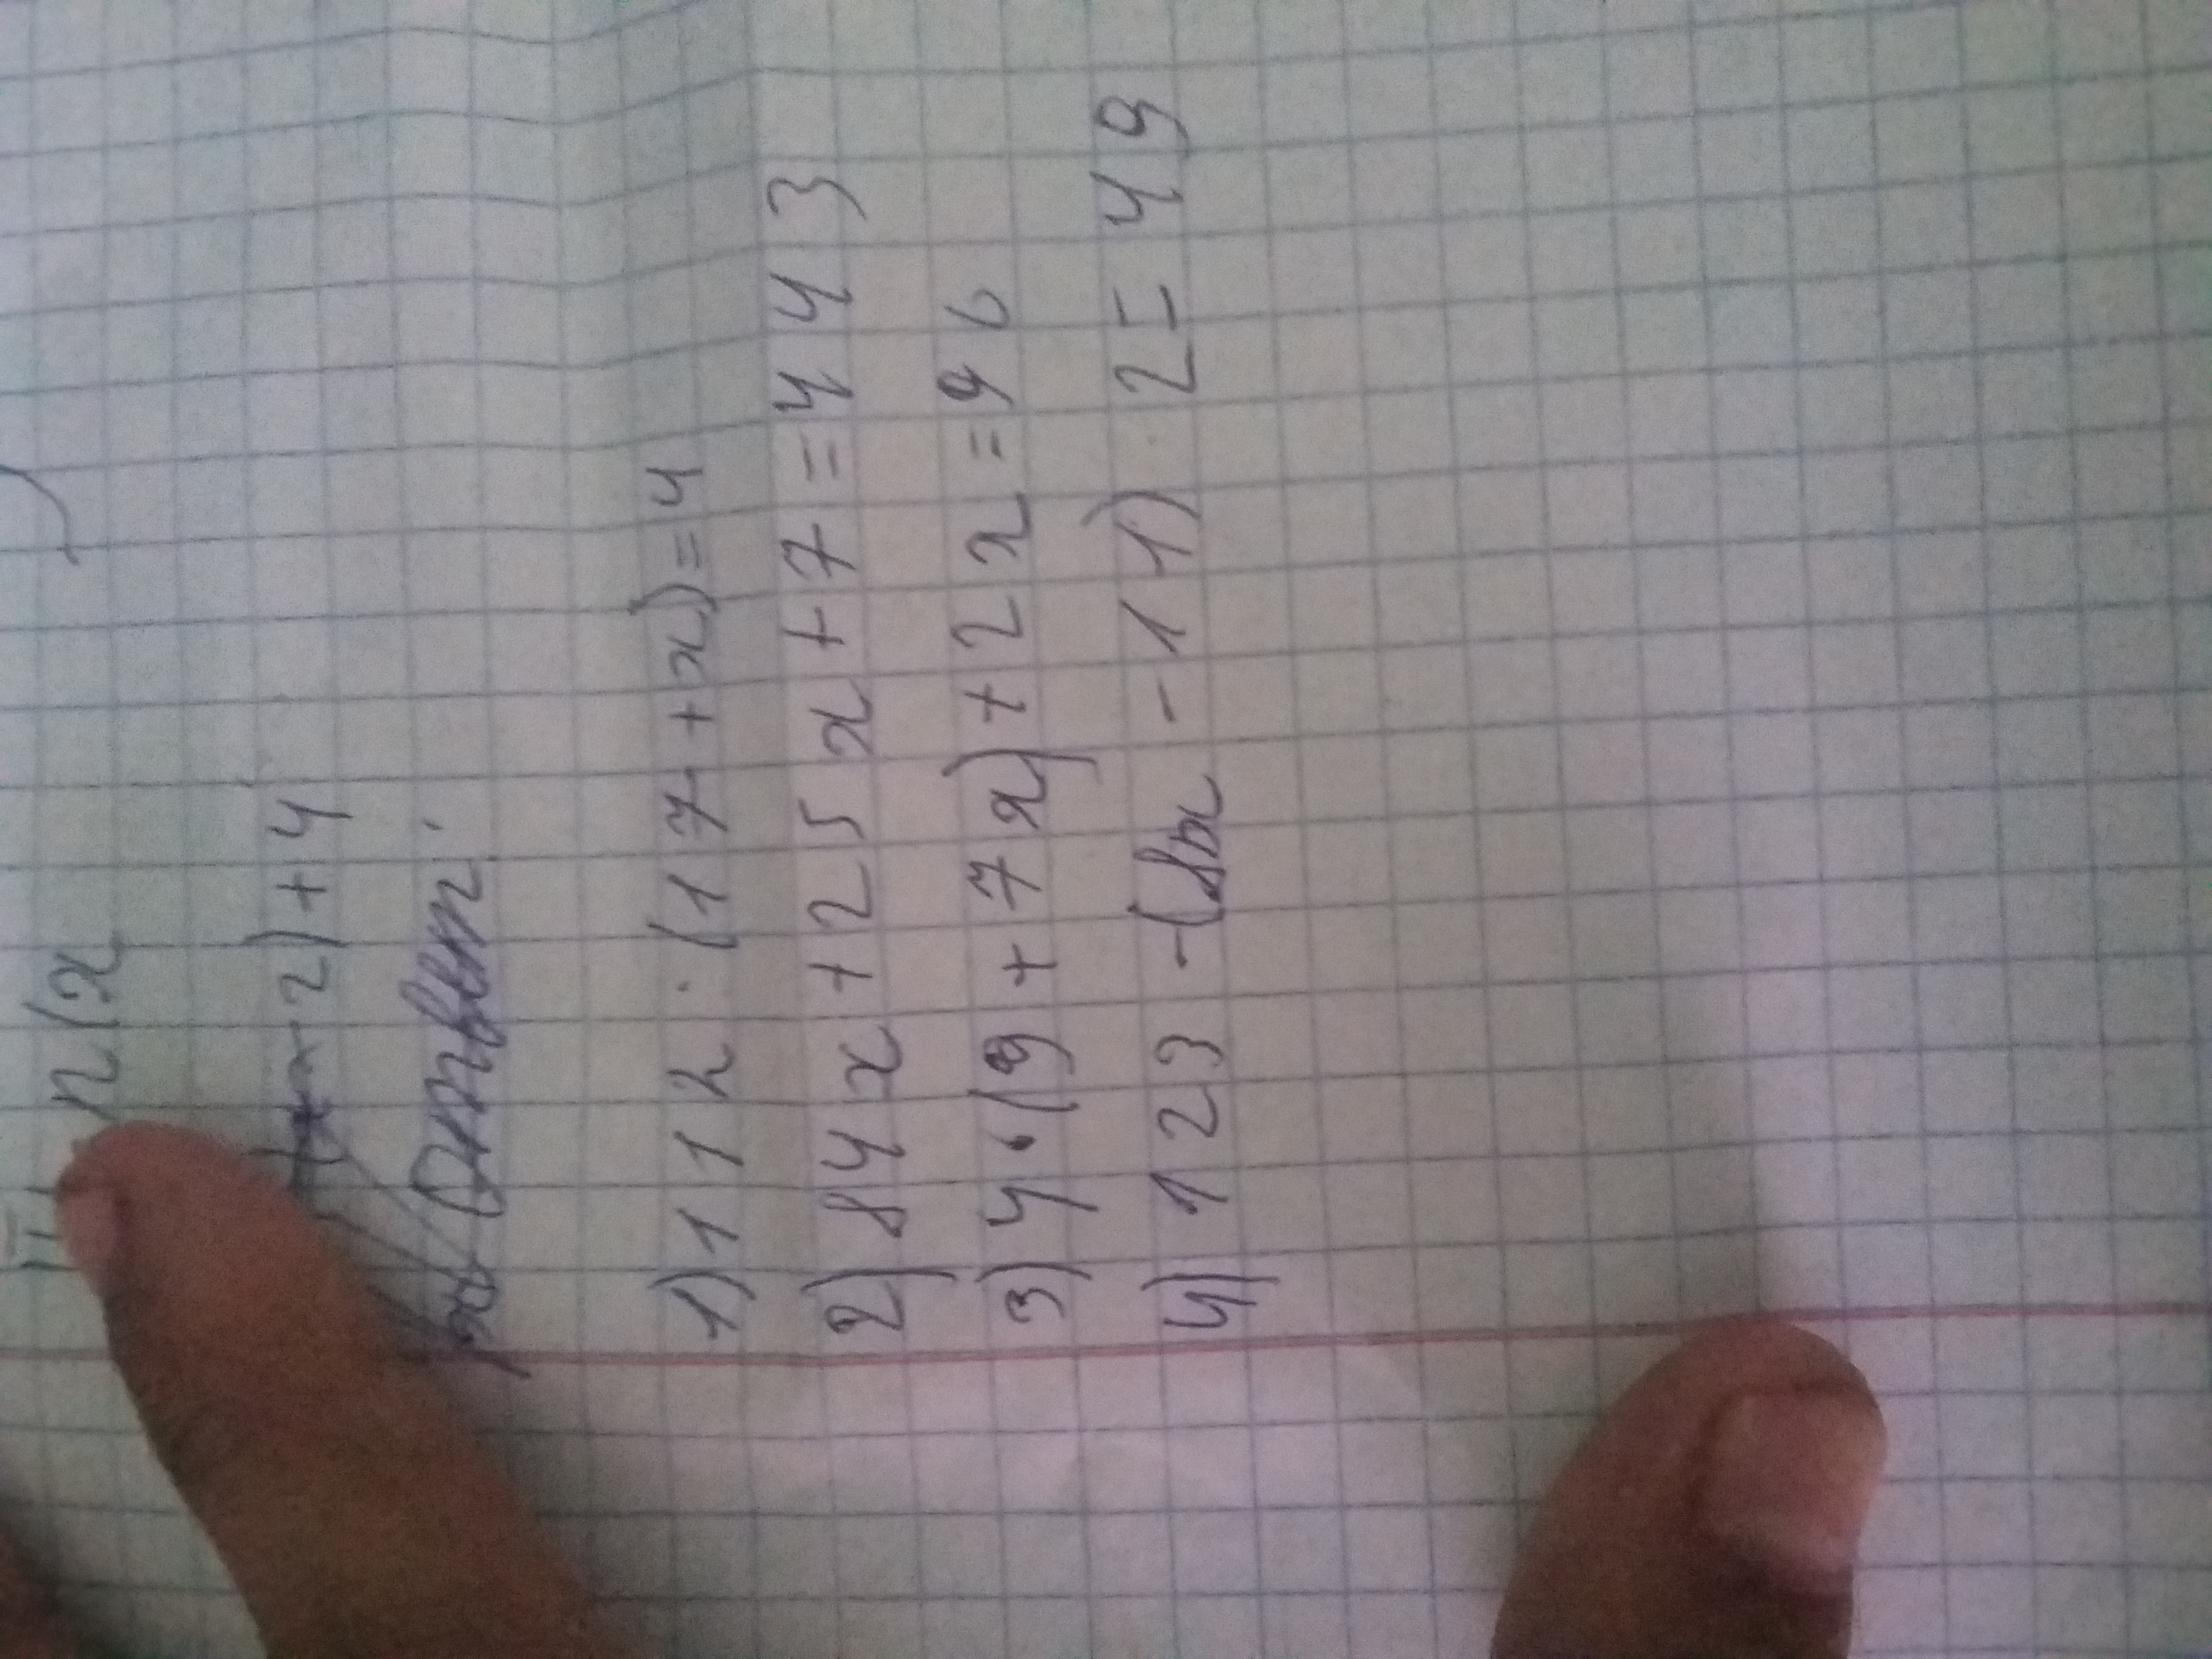 (x
- 2) + 4
Ответ.
1) 112 : (17 + x) = 4
2) 84x + 25x + 7 = 443
3) 4 · (9 + 7x) + 2x = 96
4) 123 - (8x - 11) · 2 = 49